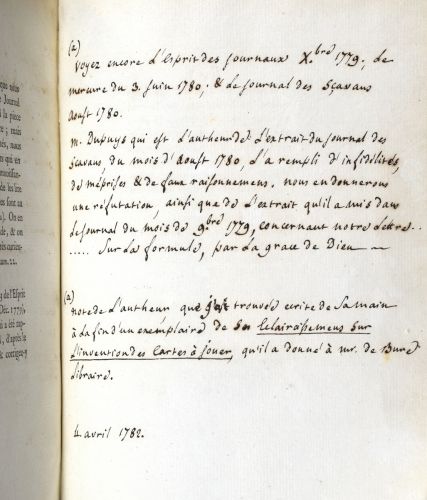 que nous
Journal
à la piece
; mais
tés, nous
qui en
de les lire
On en
de, & on
num. 22.
de l'Esprit
Déc. 1779,
ui a été
d'après la
& corrigez-y
(a)
Voyez encore L'Esprit des journaux X.bre 1779; le
mercure du 3. Juin 1780; & le journal des Sçavans
Aoust 1780.
m. Dupuys qui est L'autheur de L'extrait du Journal des
Sçavans du mois d'Aoust 1780, L'a rempli d'infidélités,
de méprises & de faux raisonnemens. nous en donnerons
une réfutation, ainsi que de L'extrait qu'il a mis dans
le Journal du mois de 9.bre 1779, concernant notre Lettre..
..... Sur la formule, par La grace de Dieu —
(a)
note de L'autheur que trouvée ecrite de Sa main
à La fin d'un exemplaire de Ses Eclaircissemens Sur
L'invention des Cartes à jouer, qu'il a donné à mr. de Bure
Libraire.
4 avril 1782.